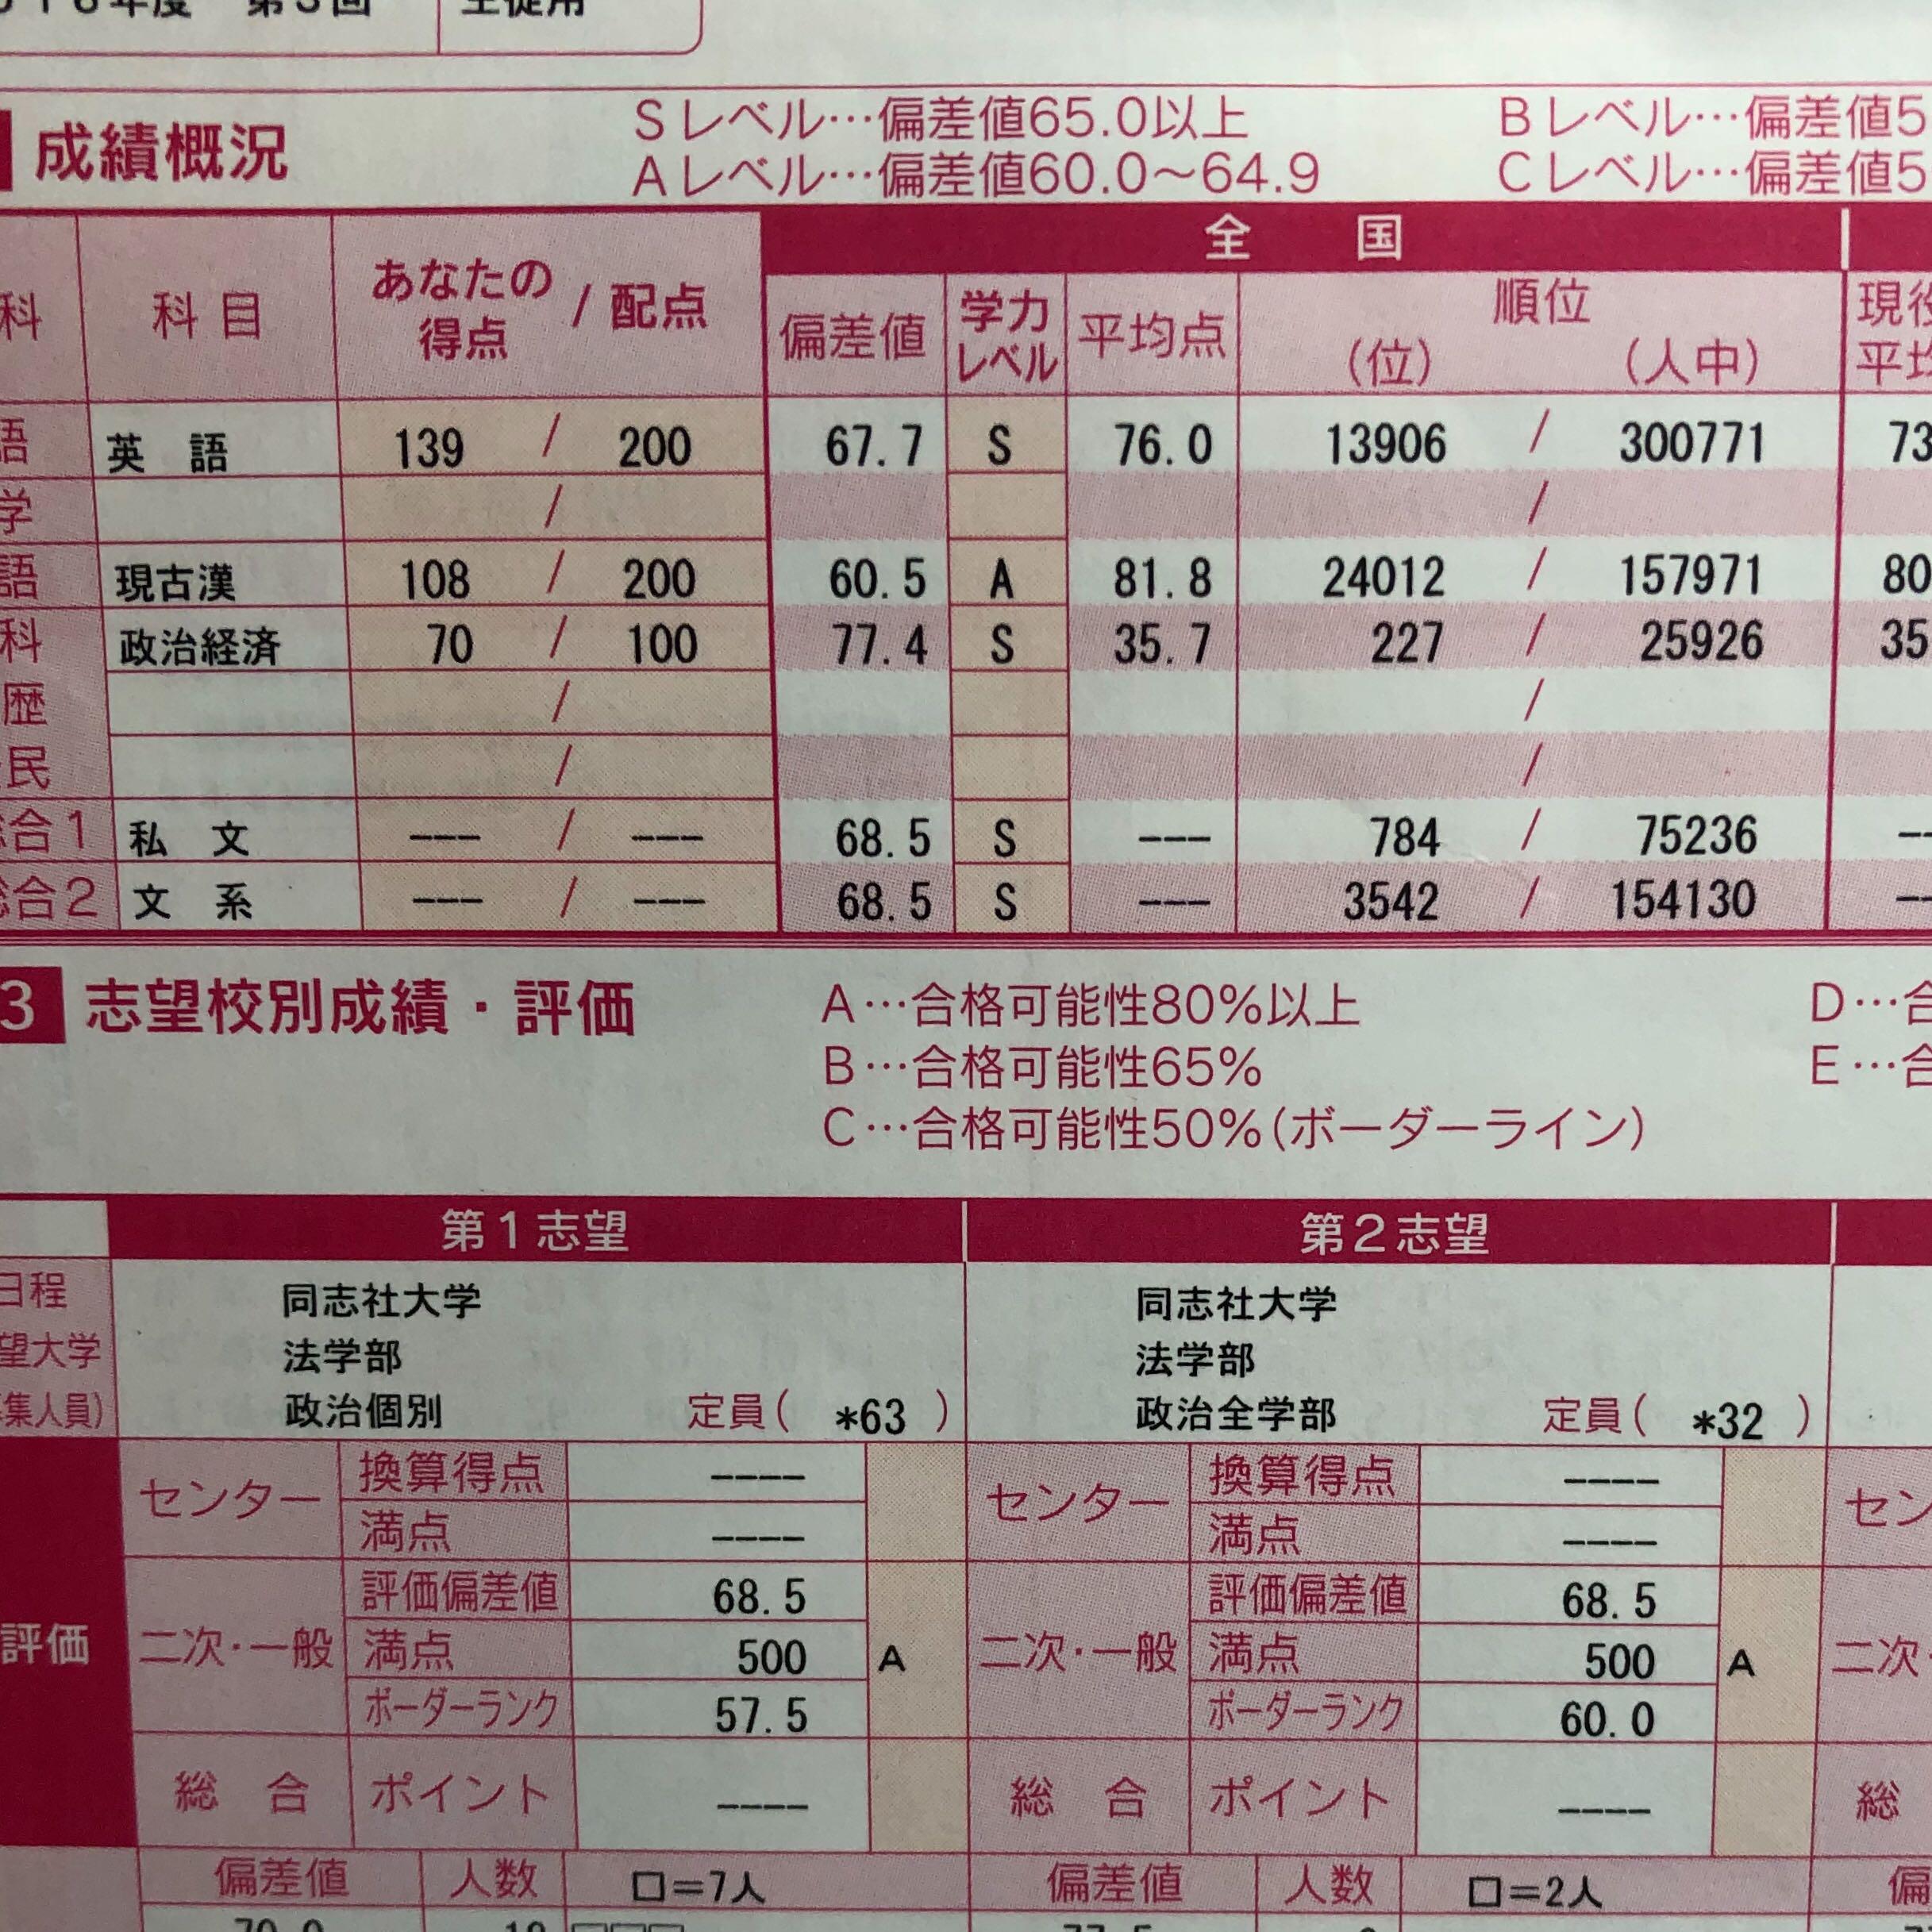 年度 第3回 生徒用
成績概況
Sレベル…偏差値65.0以上 Bレベル…偏差値5
Aレベル…偏差値60.0〜64.9 Cレベル…偏差値5
全国
科 科目 あなたの得点 / 配点 偏差値 学力レベル 平均点 順位 (位) (人中) 現役 平均
語 英語 139 / 200 67.7 S 76.0 13906 / 300771 73
学 / /
語 現古漢 108 / 200 60.5 A 81.8 24012 / 157971 80
科 政治経済 70 / 100 77.4 S 35.7 227 / 25926 35
歴 / /
民 / /
総合1 私文 --- / --- 68.5 S --- 784 / 75236 --
総合2 文系 --- / --- 68.5 S --- 3542 / 154130 --
3 志望校別成績・評価
A…合格可能性80%以上 D…合
B…合格可能性65% E…合
C…合格可能性50%(ボーダーライン)
第1志望 第2志望
日程 同志社大学 同志社大学
望大学 法学部 法学部
募集人員) 政治個別 定員( *63 ) 政治全学部 定員( *32 )
センター 換算得点 ---- センター 換算得点 ---- セン
満点 ---- 満点 ----
評価偏差値 68.5 評価偏差値 68.5
評価 二次・一般 満点 500 A 二次・一般 満点 500 A 二次・
ボーダーランク 57.5 ボーダーランク 60.0
総合 ポイント ---- 総合 ポイント ---- 総
偏差値 人数 □=7人 偏差値 人数 □=2人 偏